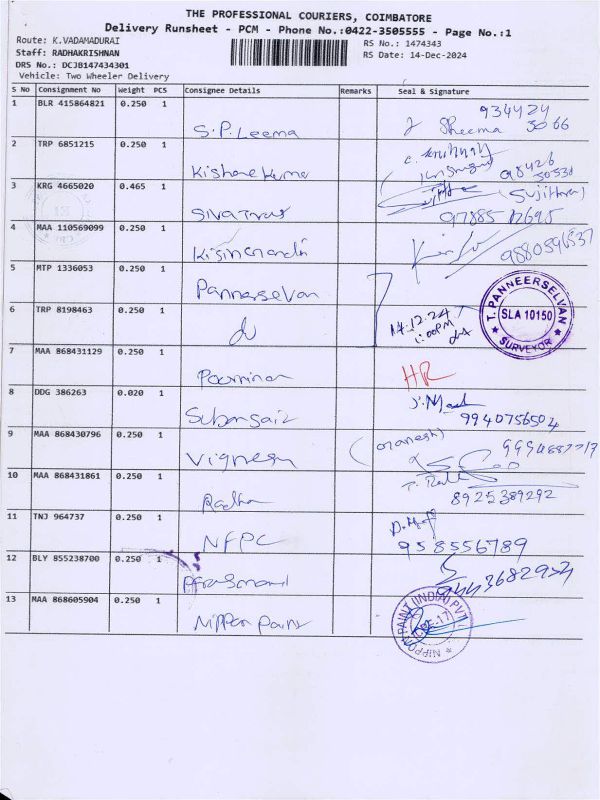 THE PROFESSIONAL COURIERS, COIMBATORE
Delivery Runsheet - PCM - Phone No.:0422-3505555 - Page No.:1
Route: K.VADAMADURAI
RS No.: 1474343
Staff: RADHAKRISHNAN
RS Date: 14-Dec-2024
DRS No.: DCJB147434301
Vehicle: Two Wheeler Delivery
S No Consignment No Weight PCS Consignee Details Remarks Seal & Signature
1 BLR 415864821 0.250 1 S.P.Leema Sheema 934424 3066
2 TRP 6851215 0.250 1 Kishore Kumar 98426 30530
3 KRG 4665020 0.465 1 (Sujitha) 97885 12695
4 MAA 110569099 0.250 1 9880596537
5 MTP 1336053 0.250 1 Pannerselvan
T. PANNEERSELVAN SLA 10150 SURVEYOR
6 TRP 8198463 0.250 1 14.12.24 1:00PM
7 MAA 868431129 0.250 1 HR
8 DDG 386263 0.020 1 9940756504
9 MAA 868430796 0.250 1 Vignesh
10 MAA 868431861 0.250 1 Radha 8925389292
11 TNJ 964737 0.250 1 NFPC 9585556789
12 BLY 855238700 0.250 1
13 MAA 868605904 0.250 1 Nippon Paint
NIPPON PAINT (INDIA) PVT